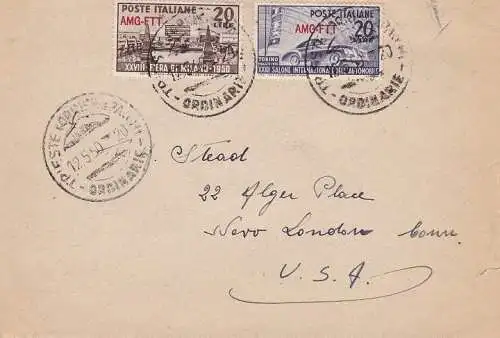 POSTE ITALIANE
20
LIRE
AMG-FTT
XXVIII FIERA DI MILANO-1950
POSTE ITALIANE
20
LIRE
AMG-FTT
TORINO
XXXII SALONE INTERNAZIONALE DELL'AUTOMOBILE
- ORDINARIE -
- ORDINARIE -
TRIESTE
12.5.50 20
- ORDINARIE -
Stead
22 Alger Place
New London Conn
U.S.A.